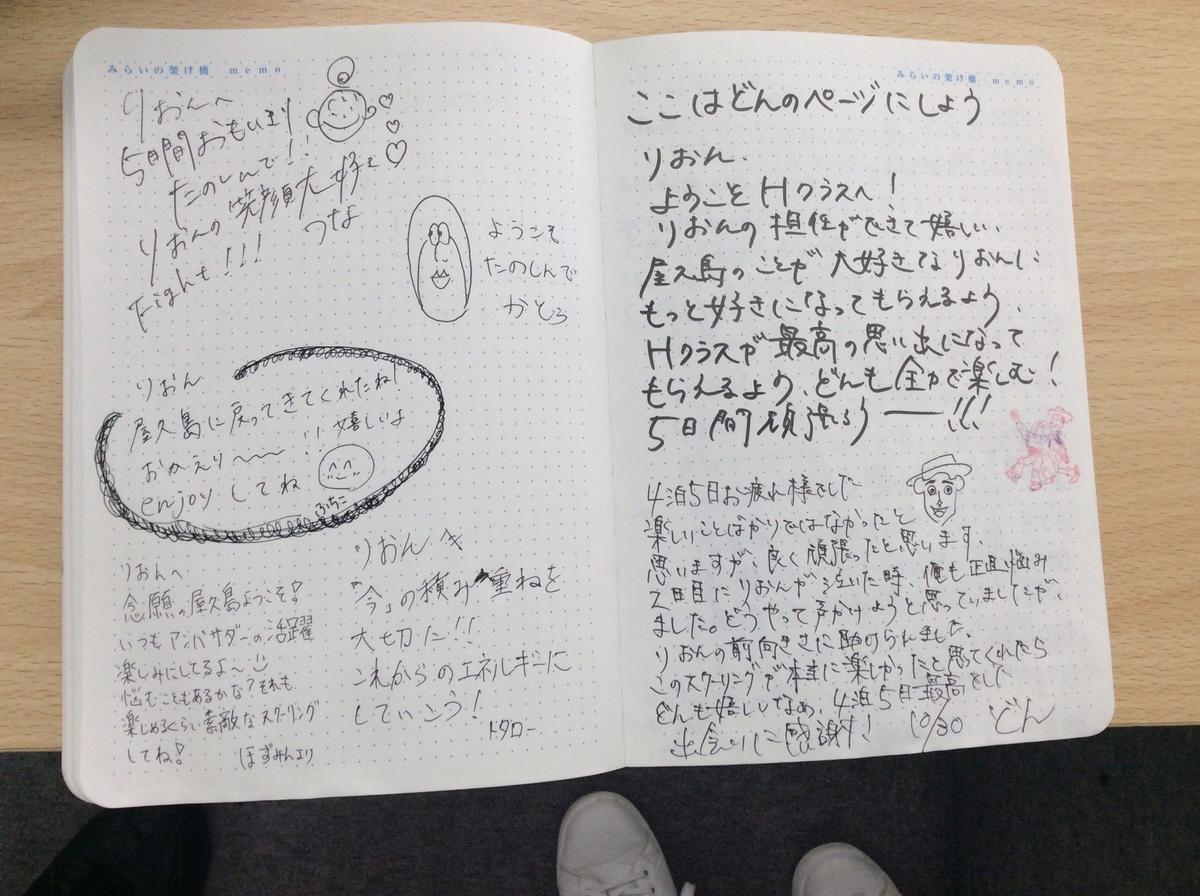 みらいの架け橋 memo
りおんへ
5日間おもいきり
たのしんで!!
りおんの笑顔大好き
つな
Fight!!!
ようこそ
たのしんで
かとう
りおん
屋久島に戻ってきてくれたね!
!! 嬉しいよ
おかえり〜〜
enjoyしてね
ふちこ
りおんへ
念願の屋久島ようこそ!
いつもアンバサダーの活躍
楽しみにしてるよ〜
悩むこともあるかな?それも
楽しめるくらい素敵なスクーリング
してね!
ほずみんより
りおんへ
「今」の積み重ねを
大切に!!
これからのエネルギーに
していこう!
トタロー
みらいの架け橋 memo
ここはどんのページにしよう
りおん、
ようこそHクラスへ!
りおんの担任ができて嬉しい、
屋久島のことが大好きなりおんに
もっと好きになってもらえるよう、
Hクラスが最高の思い出になって
もらえるよう、どんも全力で楽しむ!
5日間頑張ろうー!!!
4泊5日お疲れ様でした
楽しいことばかりではなかったと
思いますが、良く頑張ったと思います。
2日目にりおんが泣いた時、俺も正直悩み
ました。どうやって声かけようと思っていましたが、
りおんの前向きさに助けられました。
このスクーリングで本当に楽しかったと思ってくれたら
どんも嬉しいなぁ、4泊5日最高でした
出会いに感謝! 10/30 どん